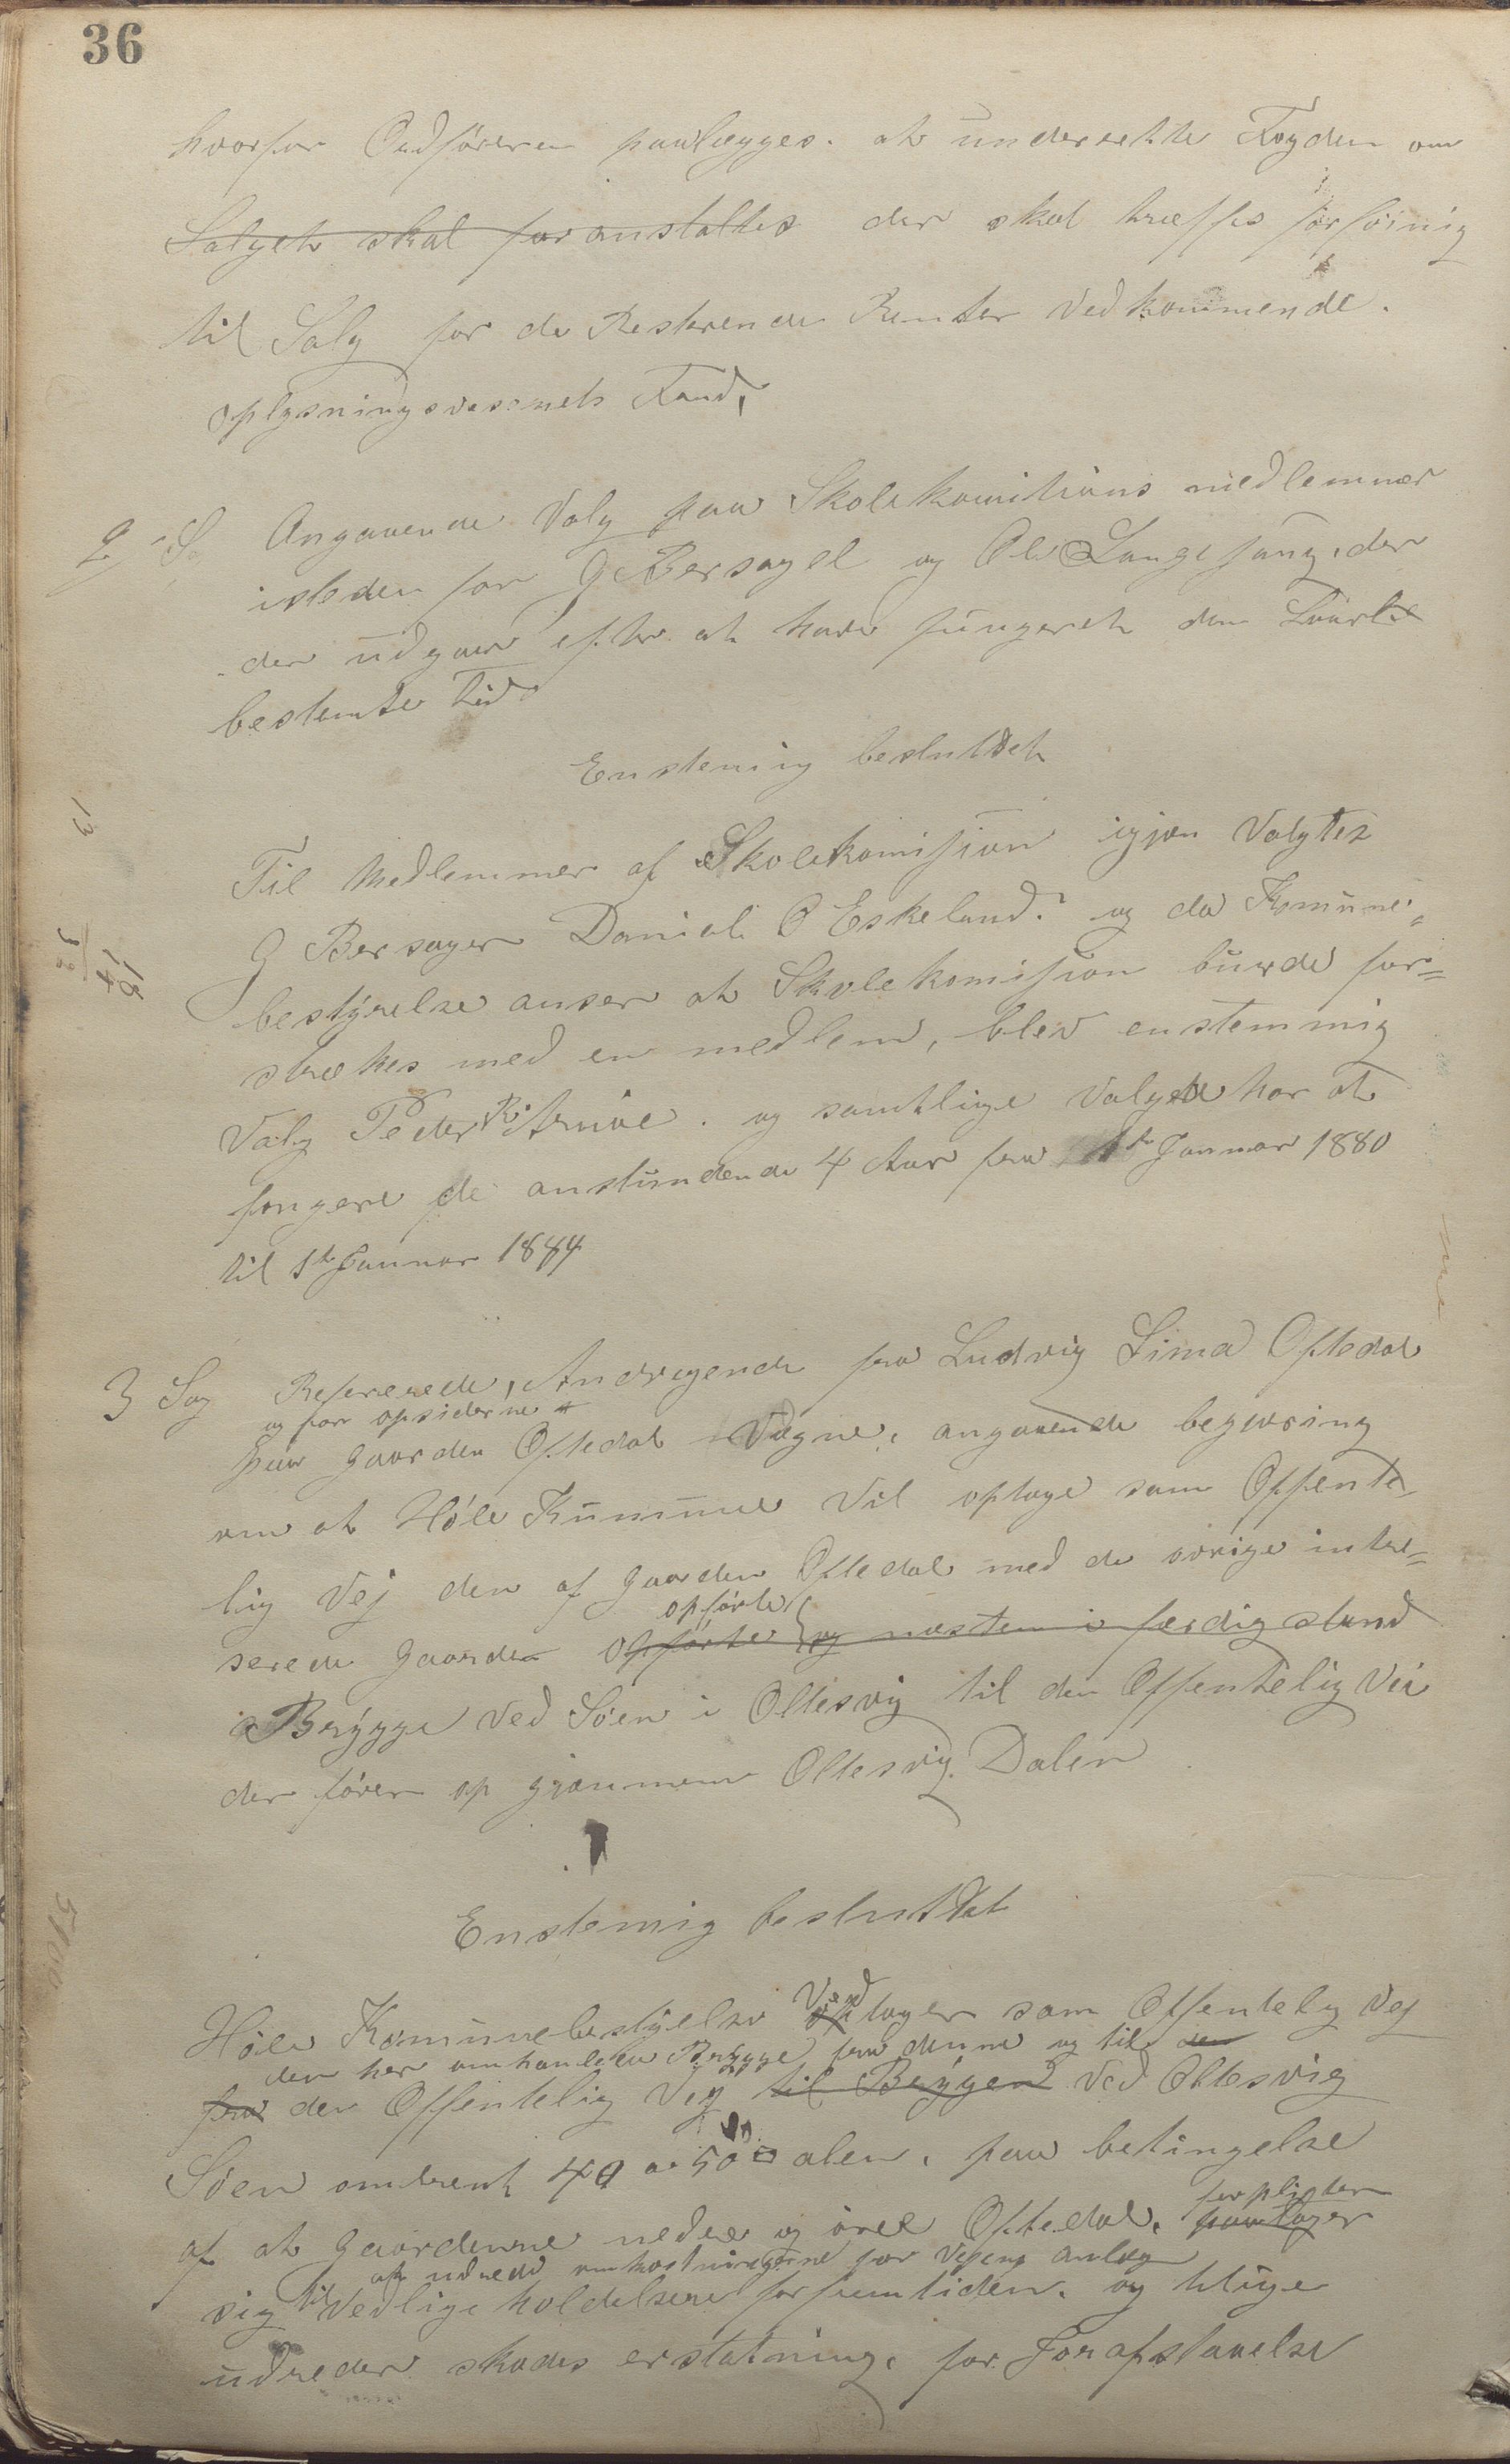 36
hvorfor Ordföreren paalægges. at underrette Fogden om
Salget skal foranstaltes der skal træffes forföinig
til Salg for de Resterende Renter Vedkommende.
oplysningsvæsenets Fond,
2 Sag Angaaende Valg paa Skolekomitions medlemmer
isteden for G Bersagel og Ole Langesang, der
der udgaar efter at have fungeret den Lovlie
bestemte tid
Enstemig besluttet
Til Medlemmer af Skolekomisjion igjen Valgtes
G Bersagen Daniel O Eskeland. og da Komune-
bestyrelse anser at Skolekomisjion burde for=
strekes med en medlem, blev enstemmig
Valg Peder R. og samtlige Valgete har at
fongere de anstundende 4 Aar fra 1te Januar 1880
til 1te Januar 1884
3 Sag Refererede, Andragende fra Ludvig Lima Oftedal
og for opsiderne
paa gaarden Oftedal Vægne, angaaende begjæring
om at Höle Kummune Vil optage som Offente
lig Vej den af gaarden Oftedal med de övrige intre=
opförte
serede gaarder opförte og næsten i færdig stand
Brygge Ved Söen i Oltesvig til den Offentelig Vei
der förer op gjennem Oltesvig Dalen
Enstemig besluttet
Höle Komunebestyelse Vedtager som Offentelig Vej
den her omhanlede Brygge fra denne og til
fra den Offentelig Vej til Bryggen Ved Oltesvig
Söen omtrent 40 a 50 alen, paa betingelse
af at gaardene nedre og övre Oftedal, forpligter
paatager
at udrede omkostningerne for Vejens anlæg
sig til Vedlige holdelsen for fremtiden, og tilige
udreder skades erstatning, for Jorafstaaelse